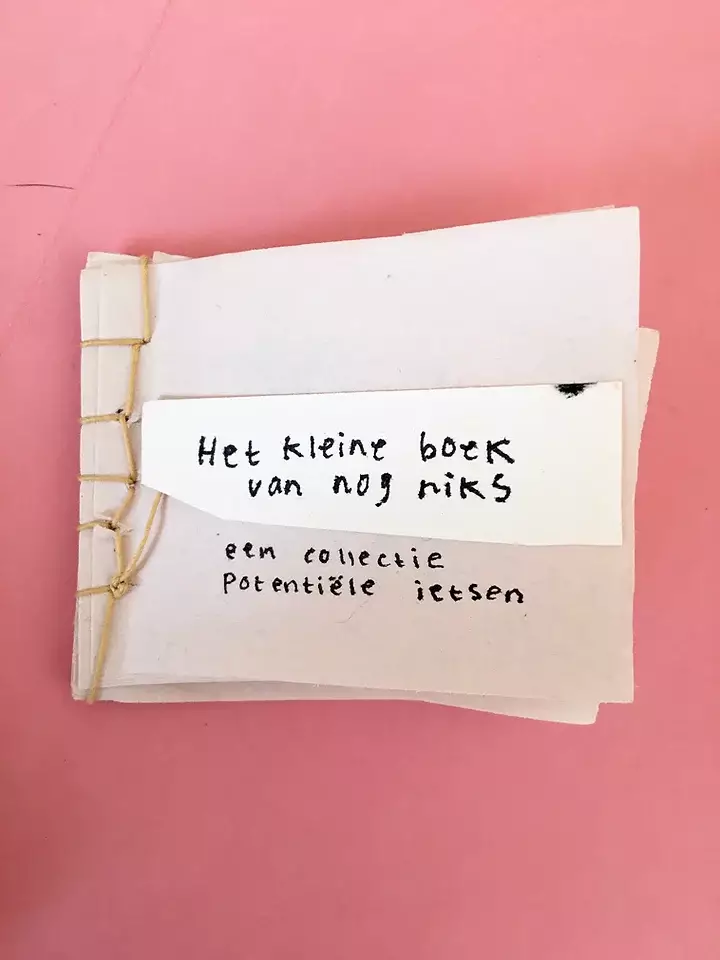 Het kleine boek
van nog niks
een collectie
potentiële ietsen